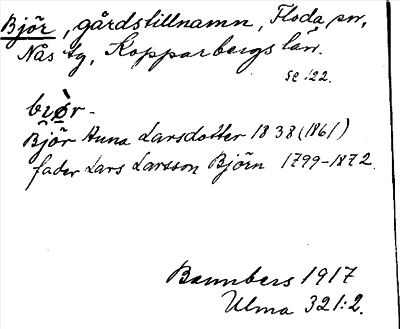 Björ, gårdstillnamn, Floda sn,
Nås tg, Kopparbergs län.
se 122.
Björ Anna Larsdotter 1838 (1861)
fader Lars Larsson Björn 1799-1872.
Bannbers 1917
Ulma 321:2.